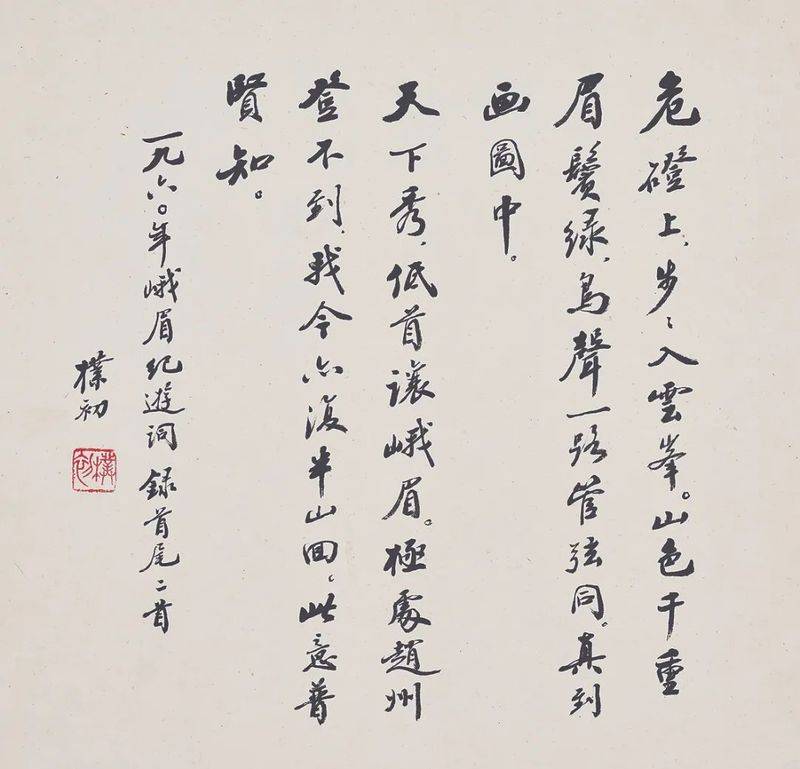 危磴上、步〻入雲峯。山色千重
眉鬢绿、鸟聲一路管弦同。真到
画圖中。
天下秀、低首讓峨眉。極處趙州
登不到、我今亦復半山回、此意普
賢知。
一九六〇年峨眉纪遊词 録首尾二首
樸初
樸初